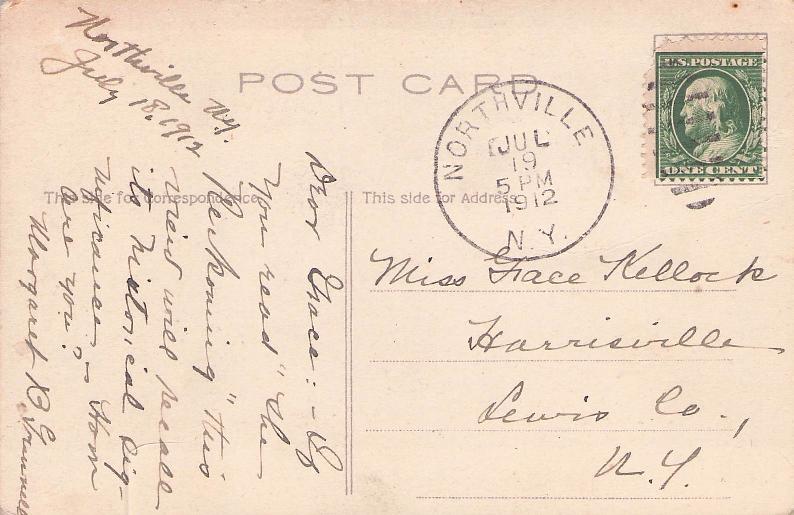 Northville NY.
July 18, 1912
POST CARD
This side for Correspondence
This side for Address
NORTHVILLE
JUL
19
5 PM
1912
N.Y.
U.S. POSTAGE
ONE CENT
Dear Grace:- If
you read "The
Reckoning" this
view will recall
its historical sig-
nificance. - How
are you?
Margaret B.
Miss Grace Kellock
Harrisville
Lewis Co.,
N.Y.